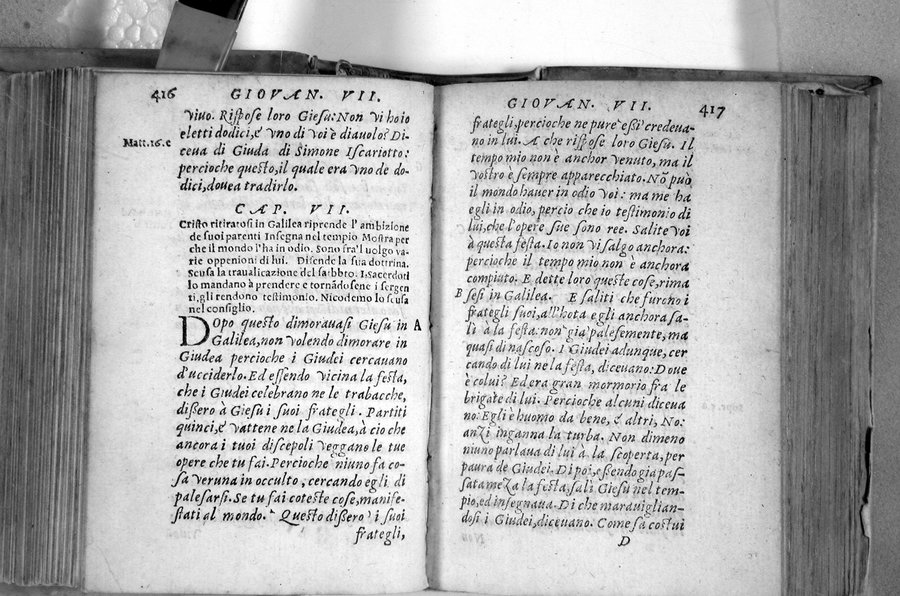 416 GIOVAN. VII.
vivo. Rispose loro Giesu: Non vi hoio
eletti dodici, e vno di voi è diauolo? Di-
ceua di Giuda di Simone Iscariotto:
percioche questo, il quale era vno de do-
dici, douea tradirlo.
Matt. 16. c
CAP. VII.
Cristo ritiratosi in Galilea riprende l' ambizione
de suoi parenti Insegna nel tempio Mostra per
che il mondo l'ha in odio. Sono fra'l uolgo va-
rie oppenioni di lui. Difende la sua dottrina.
Scusa la traualicazione del sabbto: I sacerdoti
lo mandano à prendere e tornãdosene i sergen
ti, gli rendono testimonio. Nicodemo lo scusa
nel consiglio.
DOpo questo dimorauasi Giesu in A
Galilea, non volendo dimorare in
Giudea percioche i Giudei cercauano
d'ucciderlo. Ed essendo vicina la festa,
che i Giudei celebrano ne le trabacche,
dißero à Giesù i suoi frategli. Partiti
quinci, e vattene ne la Giudea, à cio che
ancora i tuoi discepoli veggano le tue
opere che tu fai. Percioche niuno fa co-
sa veruna in occulto, cercando egli di
palesarsi. Se tu fai coteste cose, manife-
stati al mondo. Questo dißero i suoi
frategli,
GIOVAN. VII. 417
frategli, percioche ne pure eßi credeua-
no in lui. A che rispose loro Giesu. Il
tempo mio non è anchor venuto, ma il
vostro è sempre apparecchiato. Nõ può
il mondo hauer in odio voi: ma me ha
egli in odio, percio che io testimonio di
lui, che l'opere sue sono ree. Salite voi
à questa festa. Io non vi salgo anchora:
percioche il tempo mio non è anchora
compiuto. E dette loro queste cose, rima
B sesi in Galilea. E saliti che furono i
frategli suoi, all'hota egli anchora sa-
lì à la festa: non gia palesemente, ma
quasi di nascoso. I Giudei adunque, cer
cando di lui ne la festa, diceuano: Doue
è colui? Ed era gran mormorio fra le
brigate di lui. Percioche alcuni diceua
no: Egli è huomo da bene, e altri, No:
anzi inganna la turba. Non dimeno
niuno parlaua di lui à la scoperta, per
paura de Giudei. Di poi, essendo gia pas-
sata meza la festa, salì Giesu nel tem-
pio, ed insegnaua. Di che marauiglian-
dosi i Giudei, diceuano. Come sa costui
D